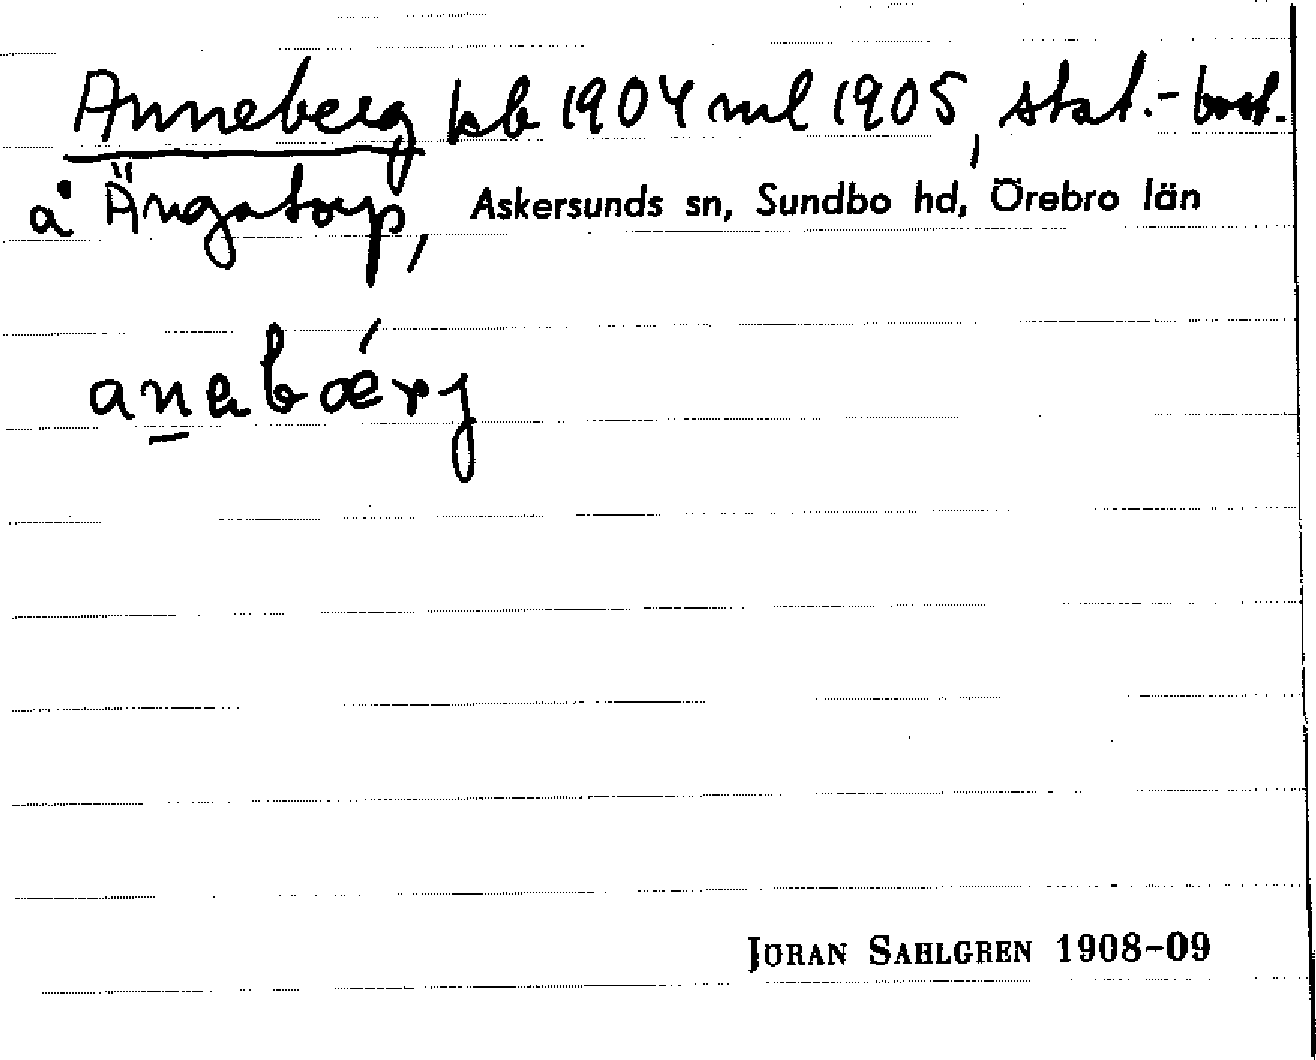 Anneberg kb 1904 ml 1905, stat.-bost.
å Ängatorp, Askersunds sn, Sundbo hd, Örebro län
anabǽrj
JÖRAN SAHLGREN 1908-09